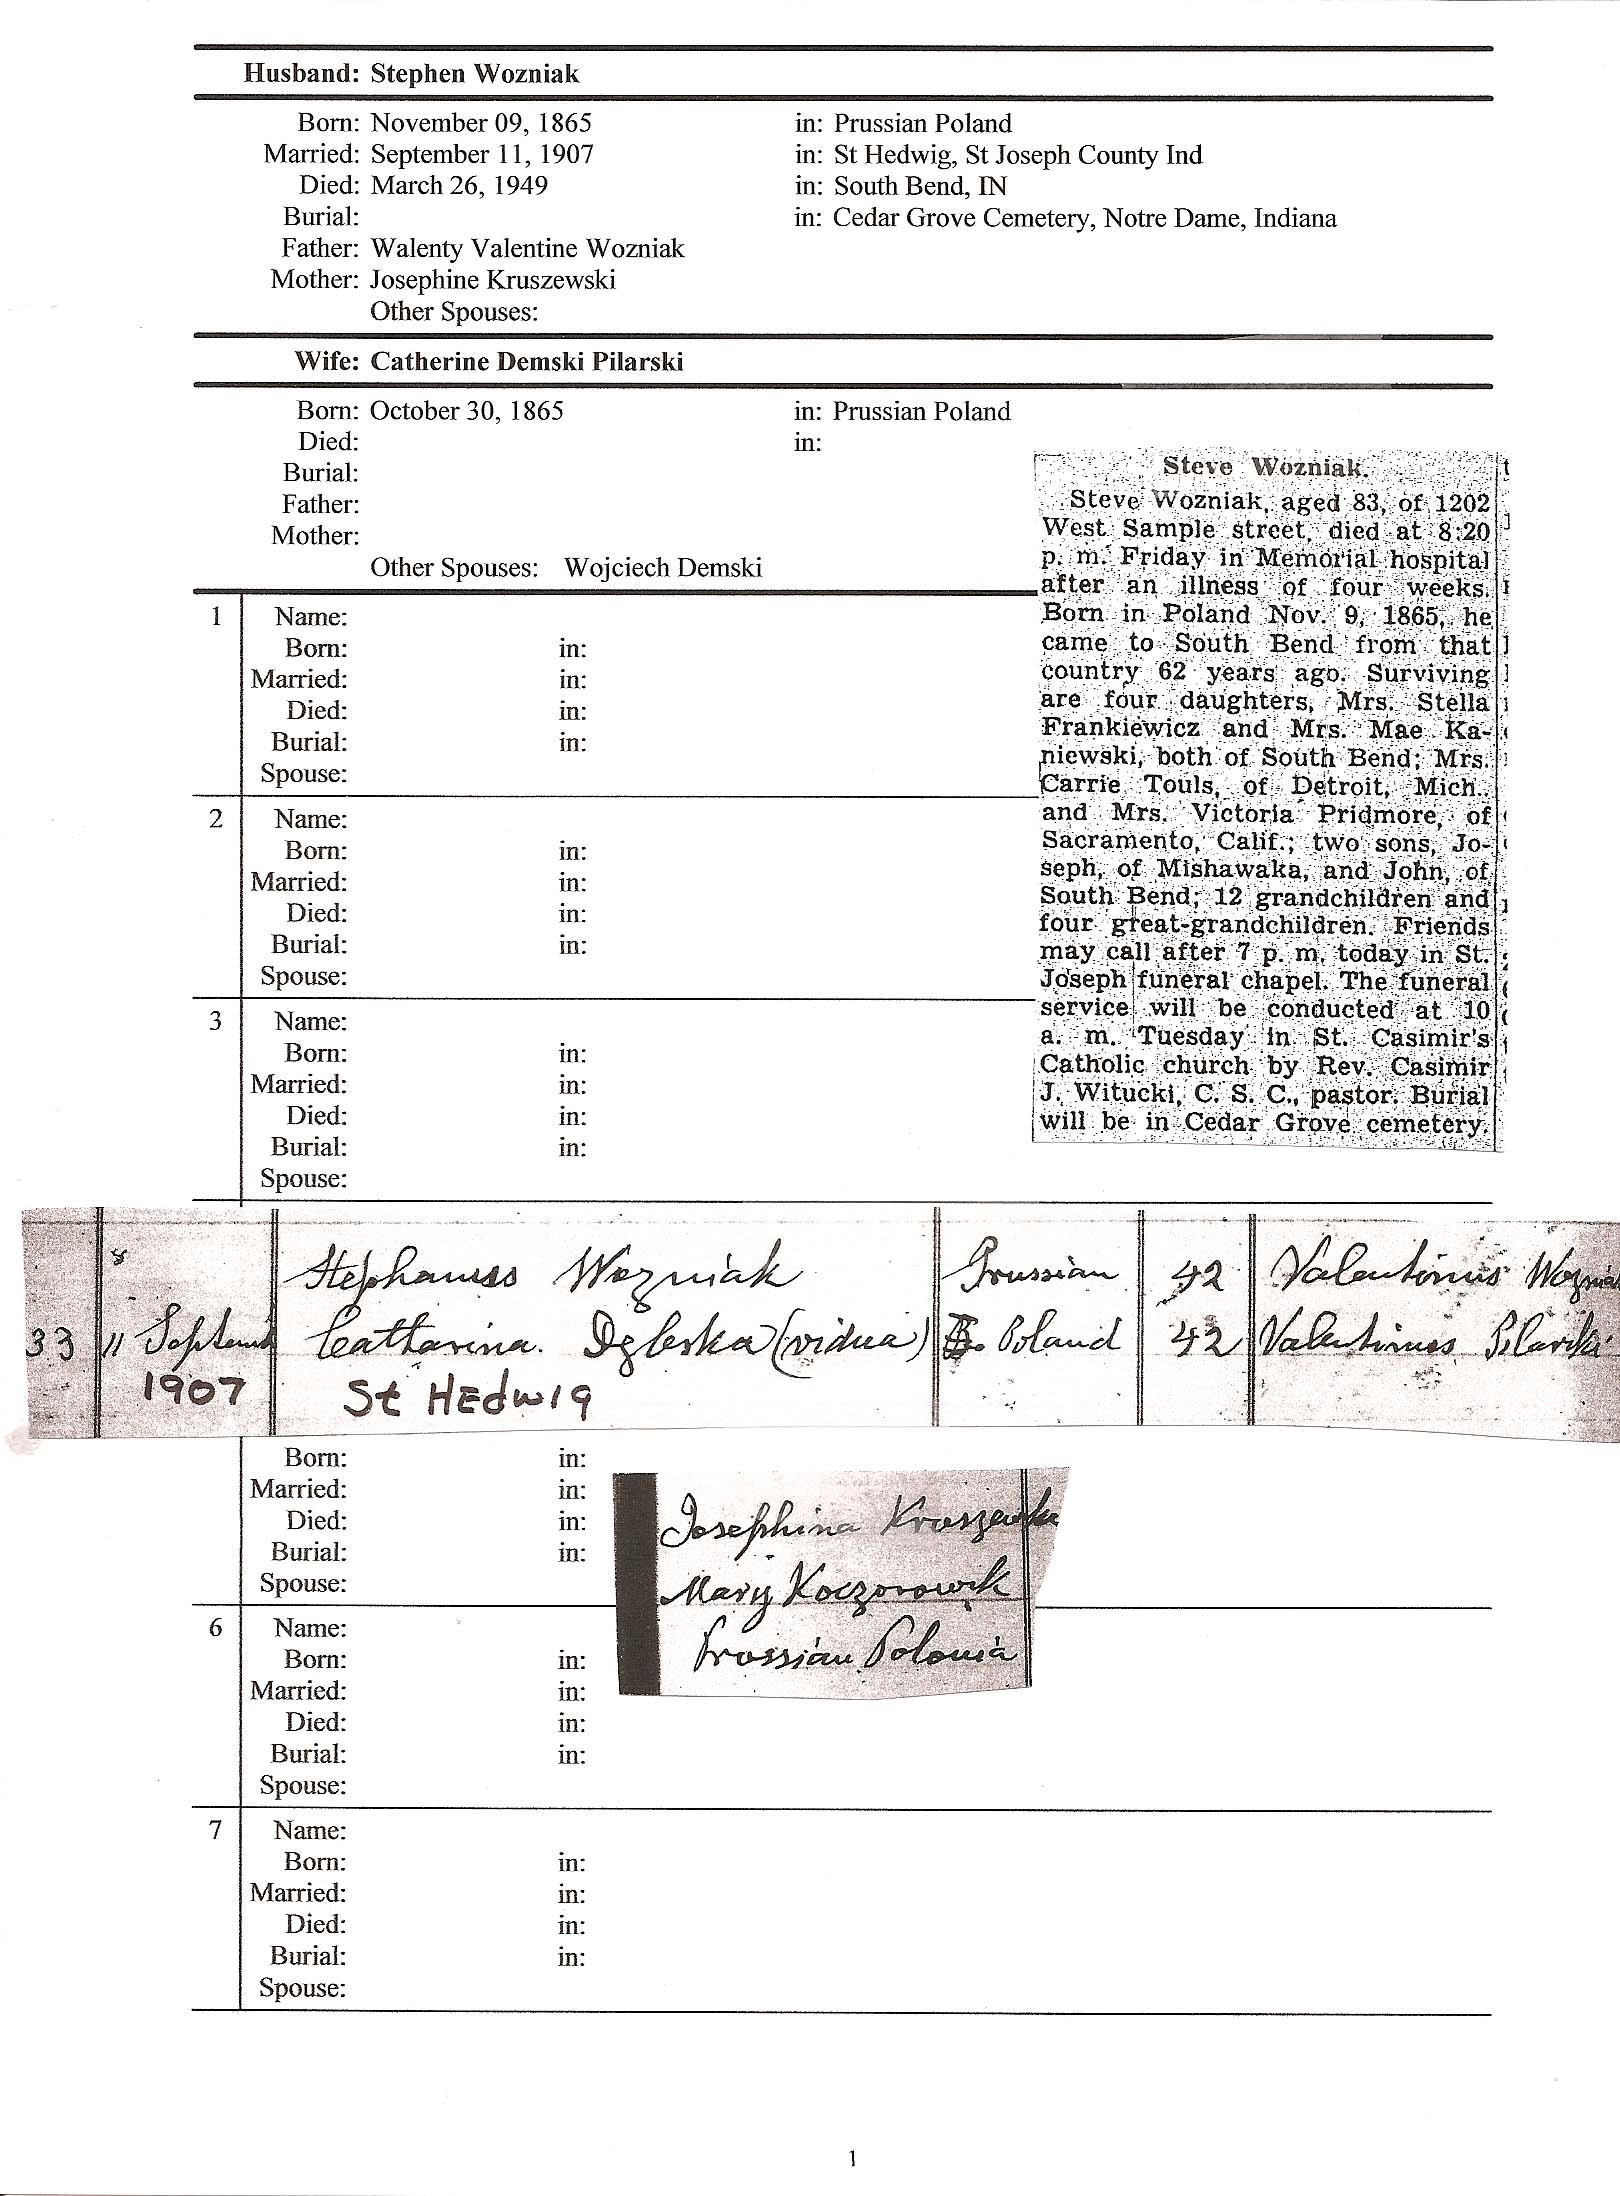 Husband: Stephen Wozniak
Born: November 09, 1865 in: Prussian Poland
Married: September 11, 1907 in: St Hedwig, St Joseph County Ind
Died: March 26, 1949 in: South Bend, IN
Burial: in: Cedar Grove Cemetery, Notre Dame, Indiana
Father: Walenty Valentine Wozniak
Mother: Josephine Kruszewski
Other Spouses:
Wife: Catherine Demski Pilarski
Born: October 30, 1865 in: Prussian Poland
Died: in:
Burial:
Father:
Mother:
Other Spouses: Wojciech Demski
Steve Wozniak.
Steve Wozniak, aged 83, of 1202
West Sample street, died at 8:20
p. m. Friday in Memorial hospital
after an illness of four weeks.
Born in Poland Nov. 9, 1865, he
came to South Bend from that
country 62 years ago. Surviving
are four daughters, Mrs. Stella
Frankiewicz and Mrs. Mae Ka-
niewski, both of South Bend; Mrs.
Carrie Touls, of Detroit, Mich.,
and Mrs. Victoria Pridmore, of
Sacramento, Calif.; two sons, Jo-
seph, of Mishawaka, and John, of
South Bend; 12 grandchildren and
four great-grandchildren. Friends
may call after 7 p. m. today in St.
Joseph funeral chapel. The funeral
service will be conducted at 10
a. m. Tuesday in St. Casimir's
Catholic church by Rev. Casimir
J. Witucki, C. S. C., pastor. Burial
will be in Cedar Grove cemetery.
1 Name:
Born: in:
Married: in:
Died: in:
Burial: in:
Spouse:
2 Name:
Born: in:
Married: in:
Died: in:
Burial: in:
Spouse:
3 Name:
Born: in:
Married: in:
Died: in:
Burial: in:
Spouse:
Stephanus Wozniak Prussian 42 Valentinus Wozniak
33 11 Septemb Catharina (vidua) Poland 42 Valentinus Pilarski
1907 St HEdwig
Born: in:
Married: in:
Died: in:
Burial: in:
Spouse:
Josephina
Mary
Prussian Polonia
6 Name:
Born: in:
Married: in:
Died: in:
Burial: in:
Spouse:
7 Name:
Born: in:
Married: in:
Died: in:
Burial: in:
Spouse:
1